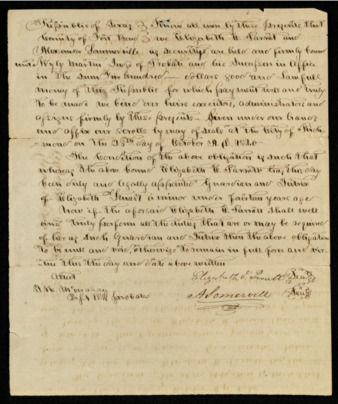 Republic of Texas } Know all men by these Presents that
County of Fort Bend } we Elizabeth E. Parrott and
Alexander Somerville as Securities are held and firmly bound
unto Wyly Martin Judge of Probate and his Successors in Office
in the Sum Five hundred dollars good and Lawful
money of this Republic for which payment well and truly
to be made we bind our heirs executors, administrators and
assigns firmly by these presents Given under our hands
and affix our scrolls by way of seals at the City of Rich
mond on the 25th day of October A.D. 1840
The Condition of the above obligation is such that
whereas the above bound Elizabeth E. Parrott has this day
been duly and legally appointed Guardian and Tutrix
of Elizabeth Stuart a minor under fourteen years age
Now if the aforesaid Elizabeth E. Parrott shall well
and truly perform all the duties that are or may be required
of her as such Guardian and Tutrix then the above obligation
to be null and void, otherwise to remain in full force and vir
tue this the day and date above written
Attest
Elizabeth E. Parrott Seal
A Somervell Seal
Probate